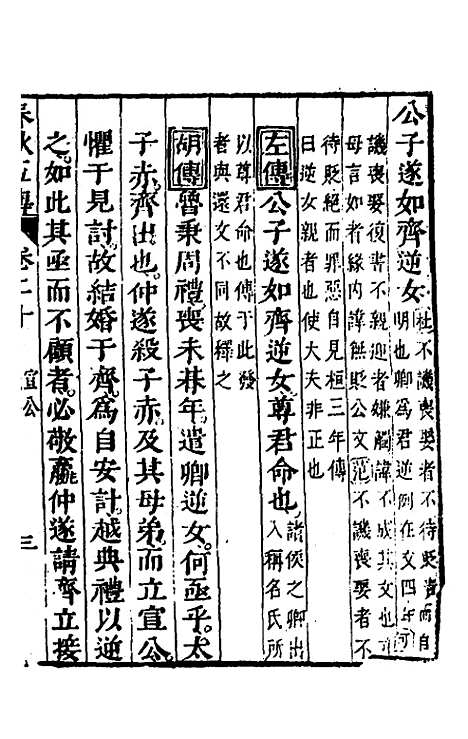 公子遂如齊逆女
杜不譏喪娶者不待貶責而自
明也卿爲君逆例在文四年何
譏喪娶復書不親迎者嫌觸諱不成其文也
母言如者緣內諱無貶公文范不譏喪娶者不
待貶絕而罪惡自見桓三年傳
曰逆女親者也使大夫非正也
左傳公子遂如齊逆女尊君命也
諸侯之卿出
入稱名氏所
以尊君命也傳于此發
者與還文不同故釋之
胡傳魯秉周禮喪未朞年遣卿逆女何亟乎太
子赤齊出也仲遂殺子赤及其母弟而立宣公
懼于見討故結婚于齊爲自安計越典禮以逆
之如此其亟而不顧者必敬嬴仲遂請齊立接
春秋五傳 卷二十 宣公 三